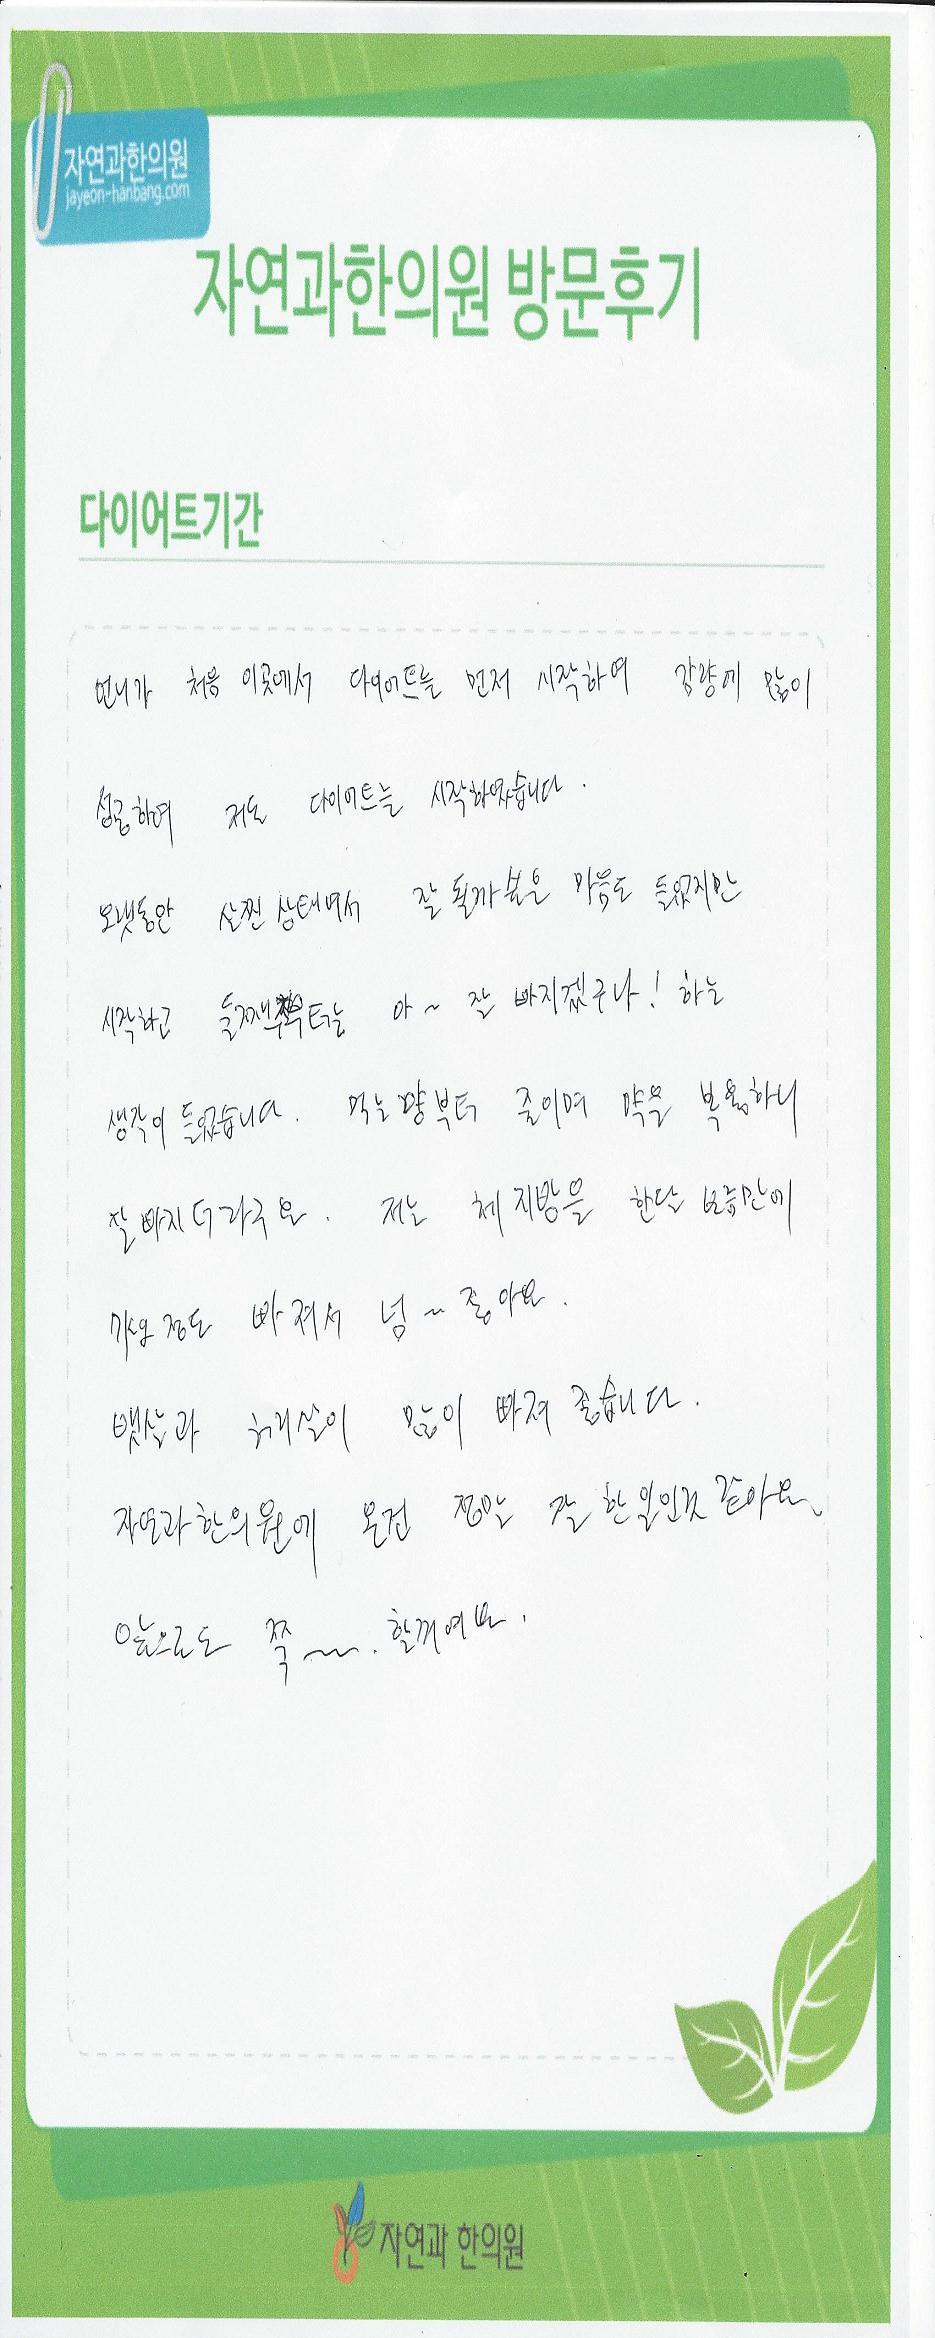 자연과한의원
jayeon-hanbang.com
자연과한의원 방문후기
다이어트기간
언니가 처음 이곳에서 다이어트를 먼저 시작하여 감량에 많이
성공하여 저도 다이어트를 시작하였습니다.
오랫동안 살찐 상태여서 잘 될까 싶은 마음도 들었지만
시작하고 둘째 부터는 아~ 잘 빠지겠구나! 하는
생각이 들었습니다. 먹는양부터 줄이며 약을 복용하니
잘 빠지더라구요. 저는 체지방을 한달 보름만에
정도 빠져서 넘~ 좋아요.
뱃살과 허리살이 많이 빠져 좋습니다.
자연과한의원에 온건 정말 잘 한 일인것 같아요.
앞으로도 쭉~~. 할꺼여요.
자연과 한의원